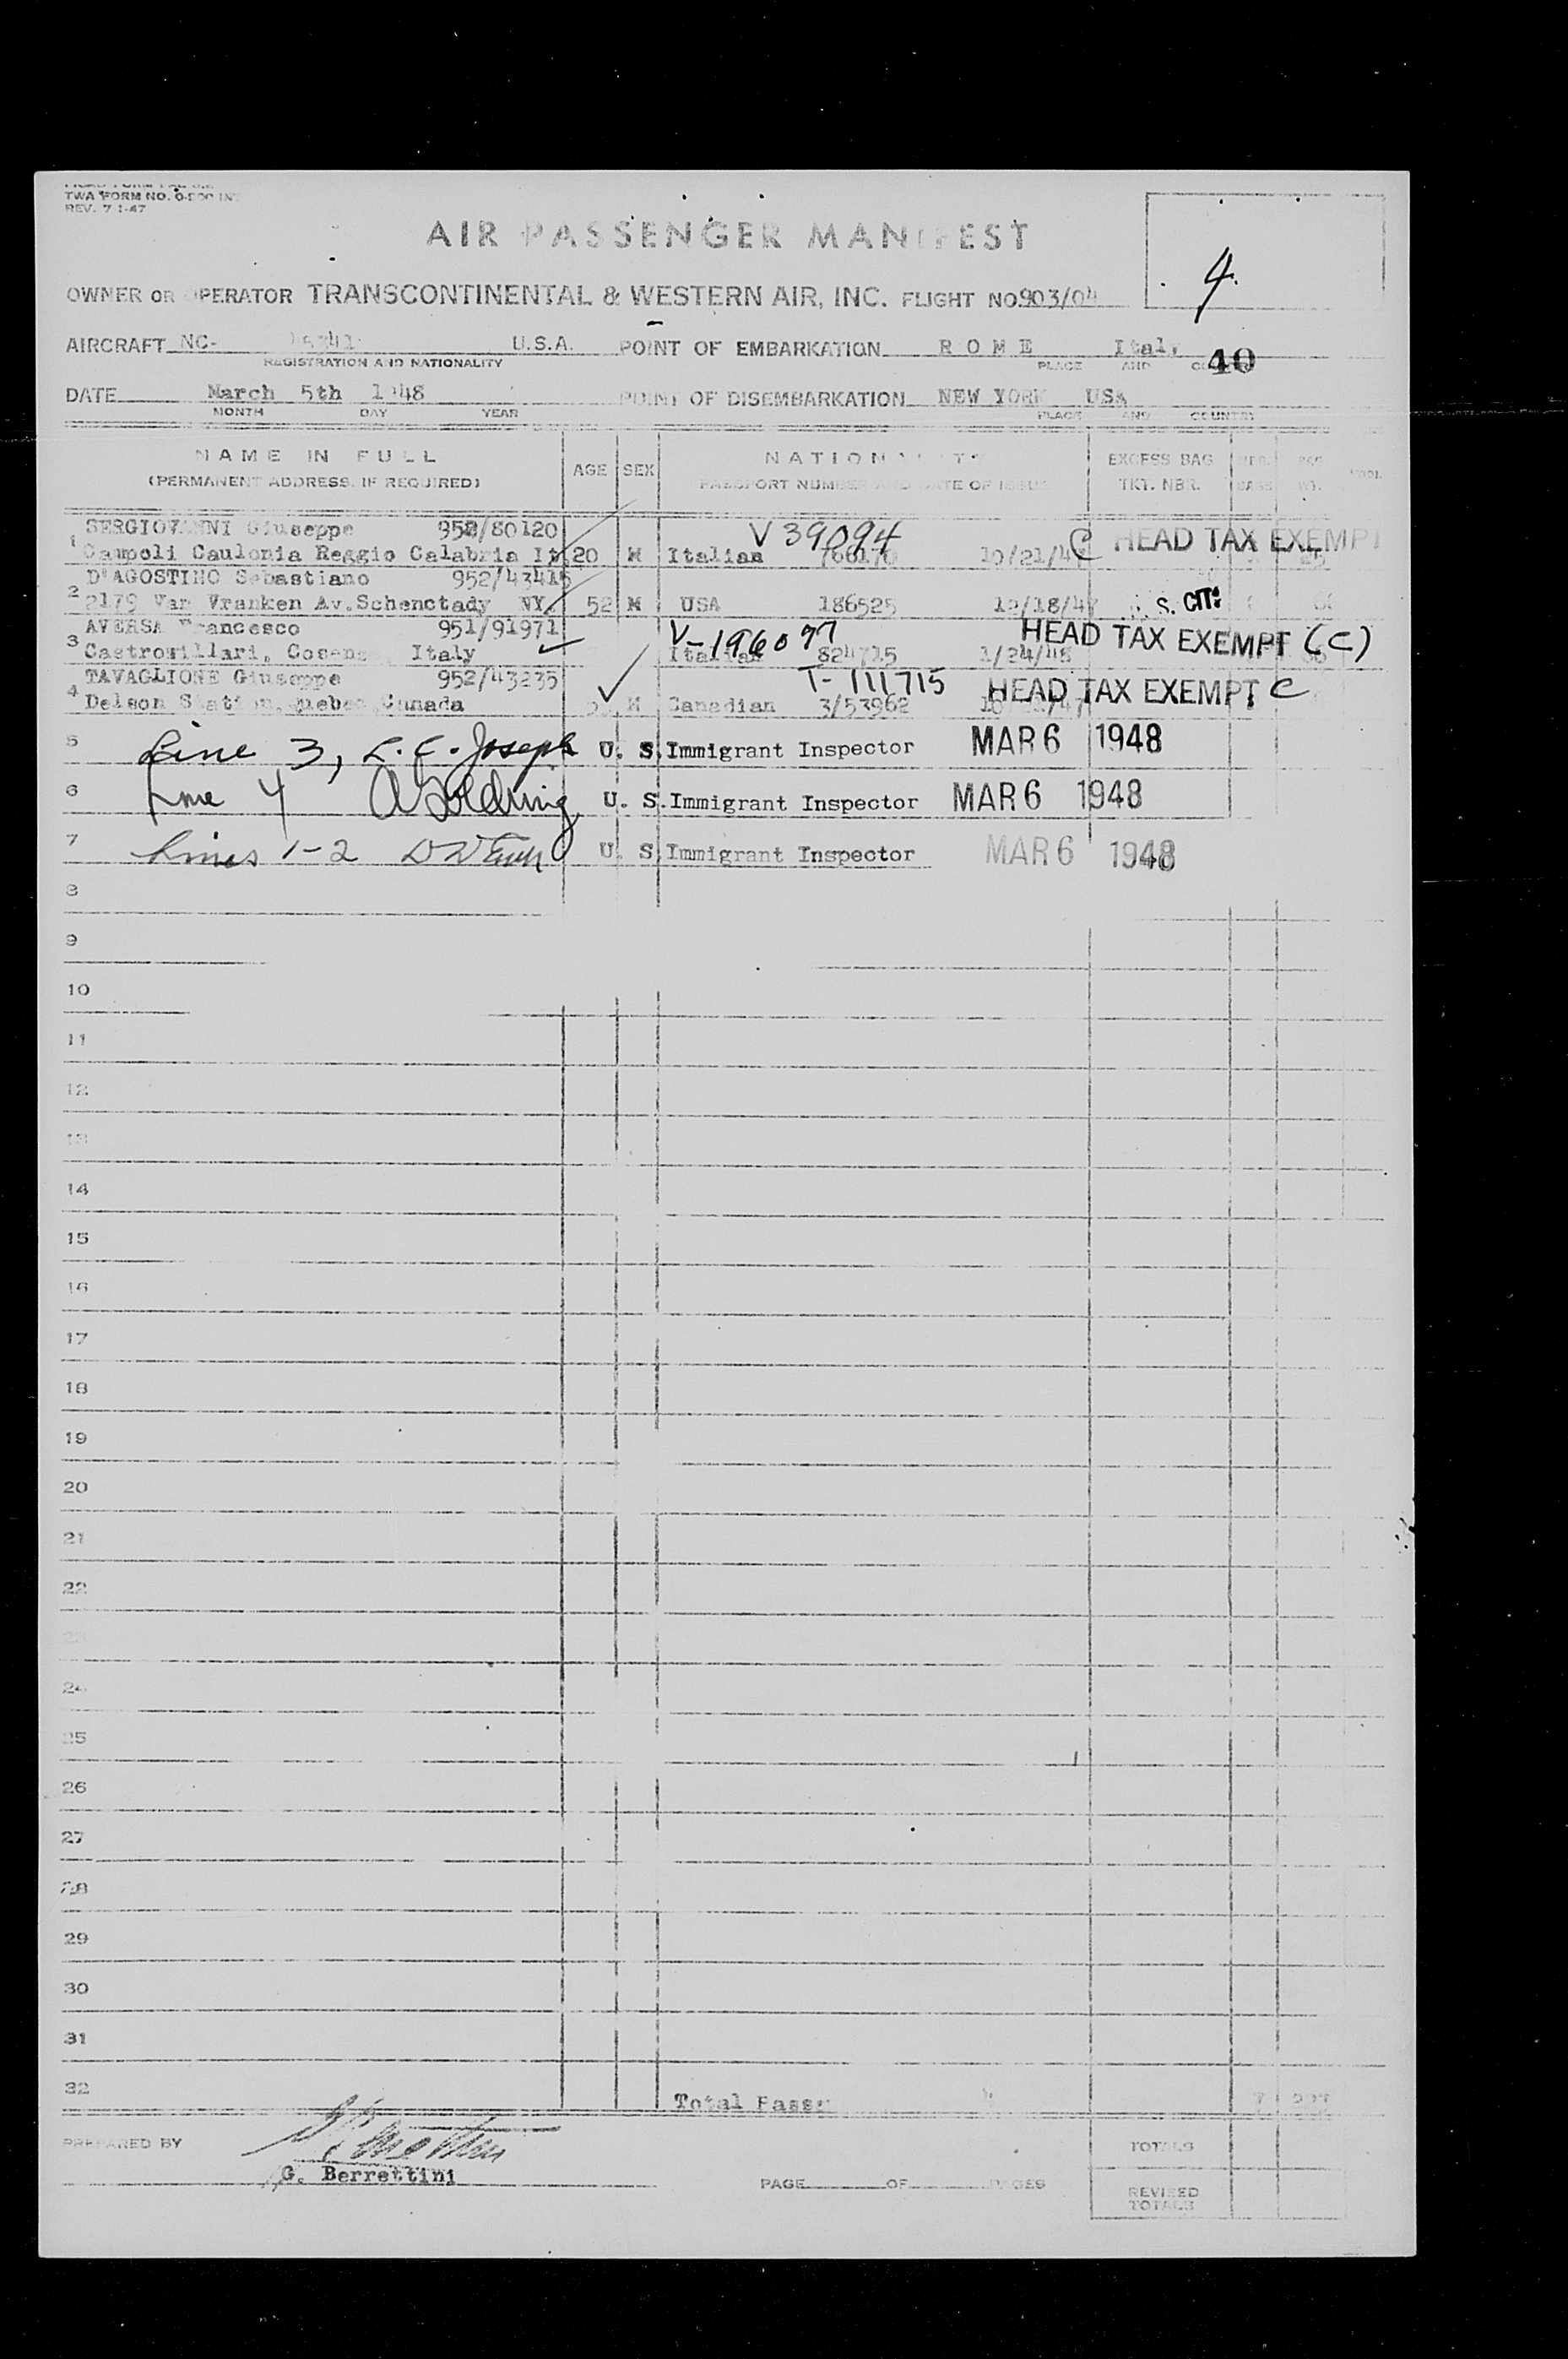 TWA FORM NO.
REV. 7-1-47
AIR PASSENGER MANIFEST
4
OWNER OR OPERATOR TRANSCONTINENTAL & WESTERN AIR, INC. FLIGHT NO. 903/04
AIRCRAFT NC- U.S.A. POINT OF EMBARKATION ROME Ital.
REGISTRATION AND NATIONALITY PLACE AND
40
DATE March 5th 1948 POINT OF DISEMBARKATION NEW YORK USA
MONTH DAY YEAR PLACE AND COUNTRY
NAME IN FULL AGE SEX NATIONALITY EXCESS BAG
(PERMANENT ADDRESS, IF REQUIRED) PASSPORT NUMBER AND DATE OF ISSUE TKT. NBR.
SERGIOVANNI Giuseppe 952/80120 V 39094
1 Campoli Caulonia Reggio Calabria It 20 M Italian 10/21/47 C HEAD TAX EXEMPT
D'AGOSTINO Sebastiano 952/43415
2 2179 Van Vranken Av.Schenctady NY. 52 M USA 186525 S. CIT.
AVERSA Francesco 951/91971 HEAD TAX EXEMPT (C)
3 Castrovillari, Cosenza Italy Italian 824715 1/24/48
TAVAGLIONE Giuseppe 952/43235 T- 111715 HEAD TAX EXEMPT C
4 Delson Station, Quebec Canada M Canadian 3/53962
5 Line 3, L. E. Joseph U. S. Immigrant Inspector MAR 6 1948
6 Line 4 A Goldring U. S. Immigrant Inspector MAR 6 1948
7 Lines 1-2 U. S. Immigrant Inspector MAR 6 1948
8
9
10
11
12
13
14
15
16
17
18
19
20
21
22
23
24
25
26
27
28
29
30
31
32 Total Passg
PREPARED BY TOTALS
G. Berrettini PAGE OF PAGES REVISED
TOTALS